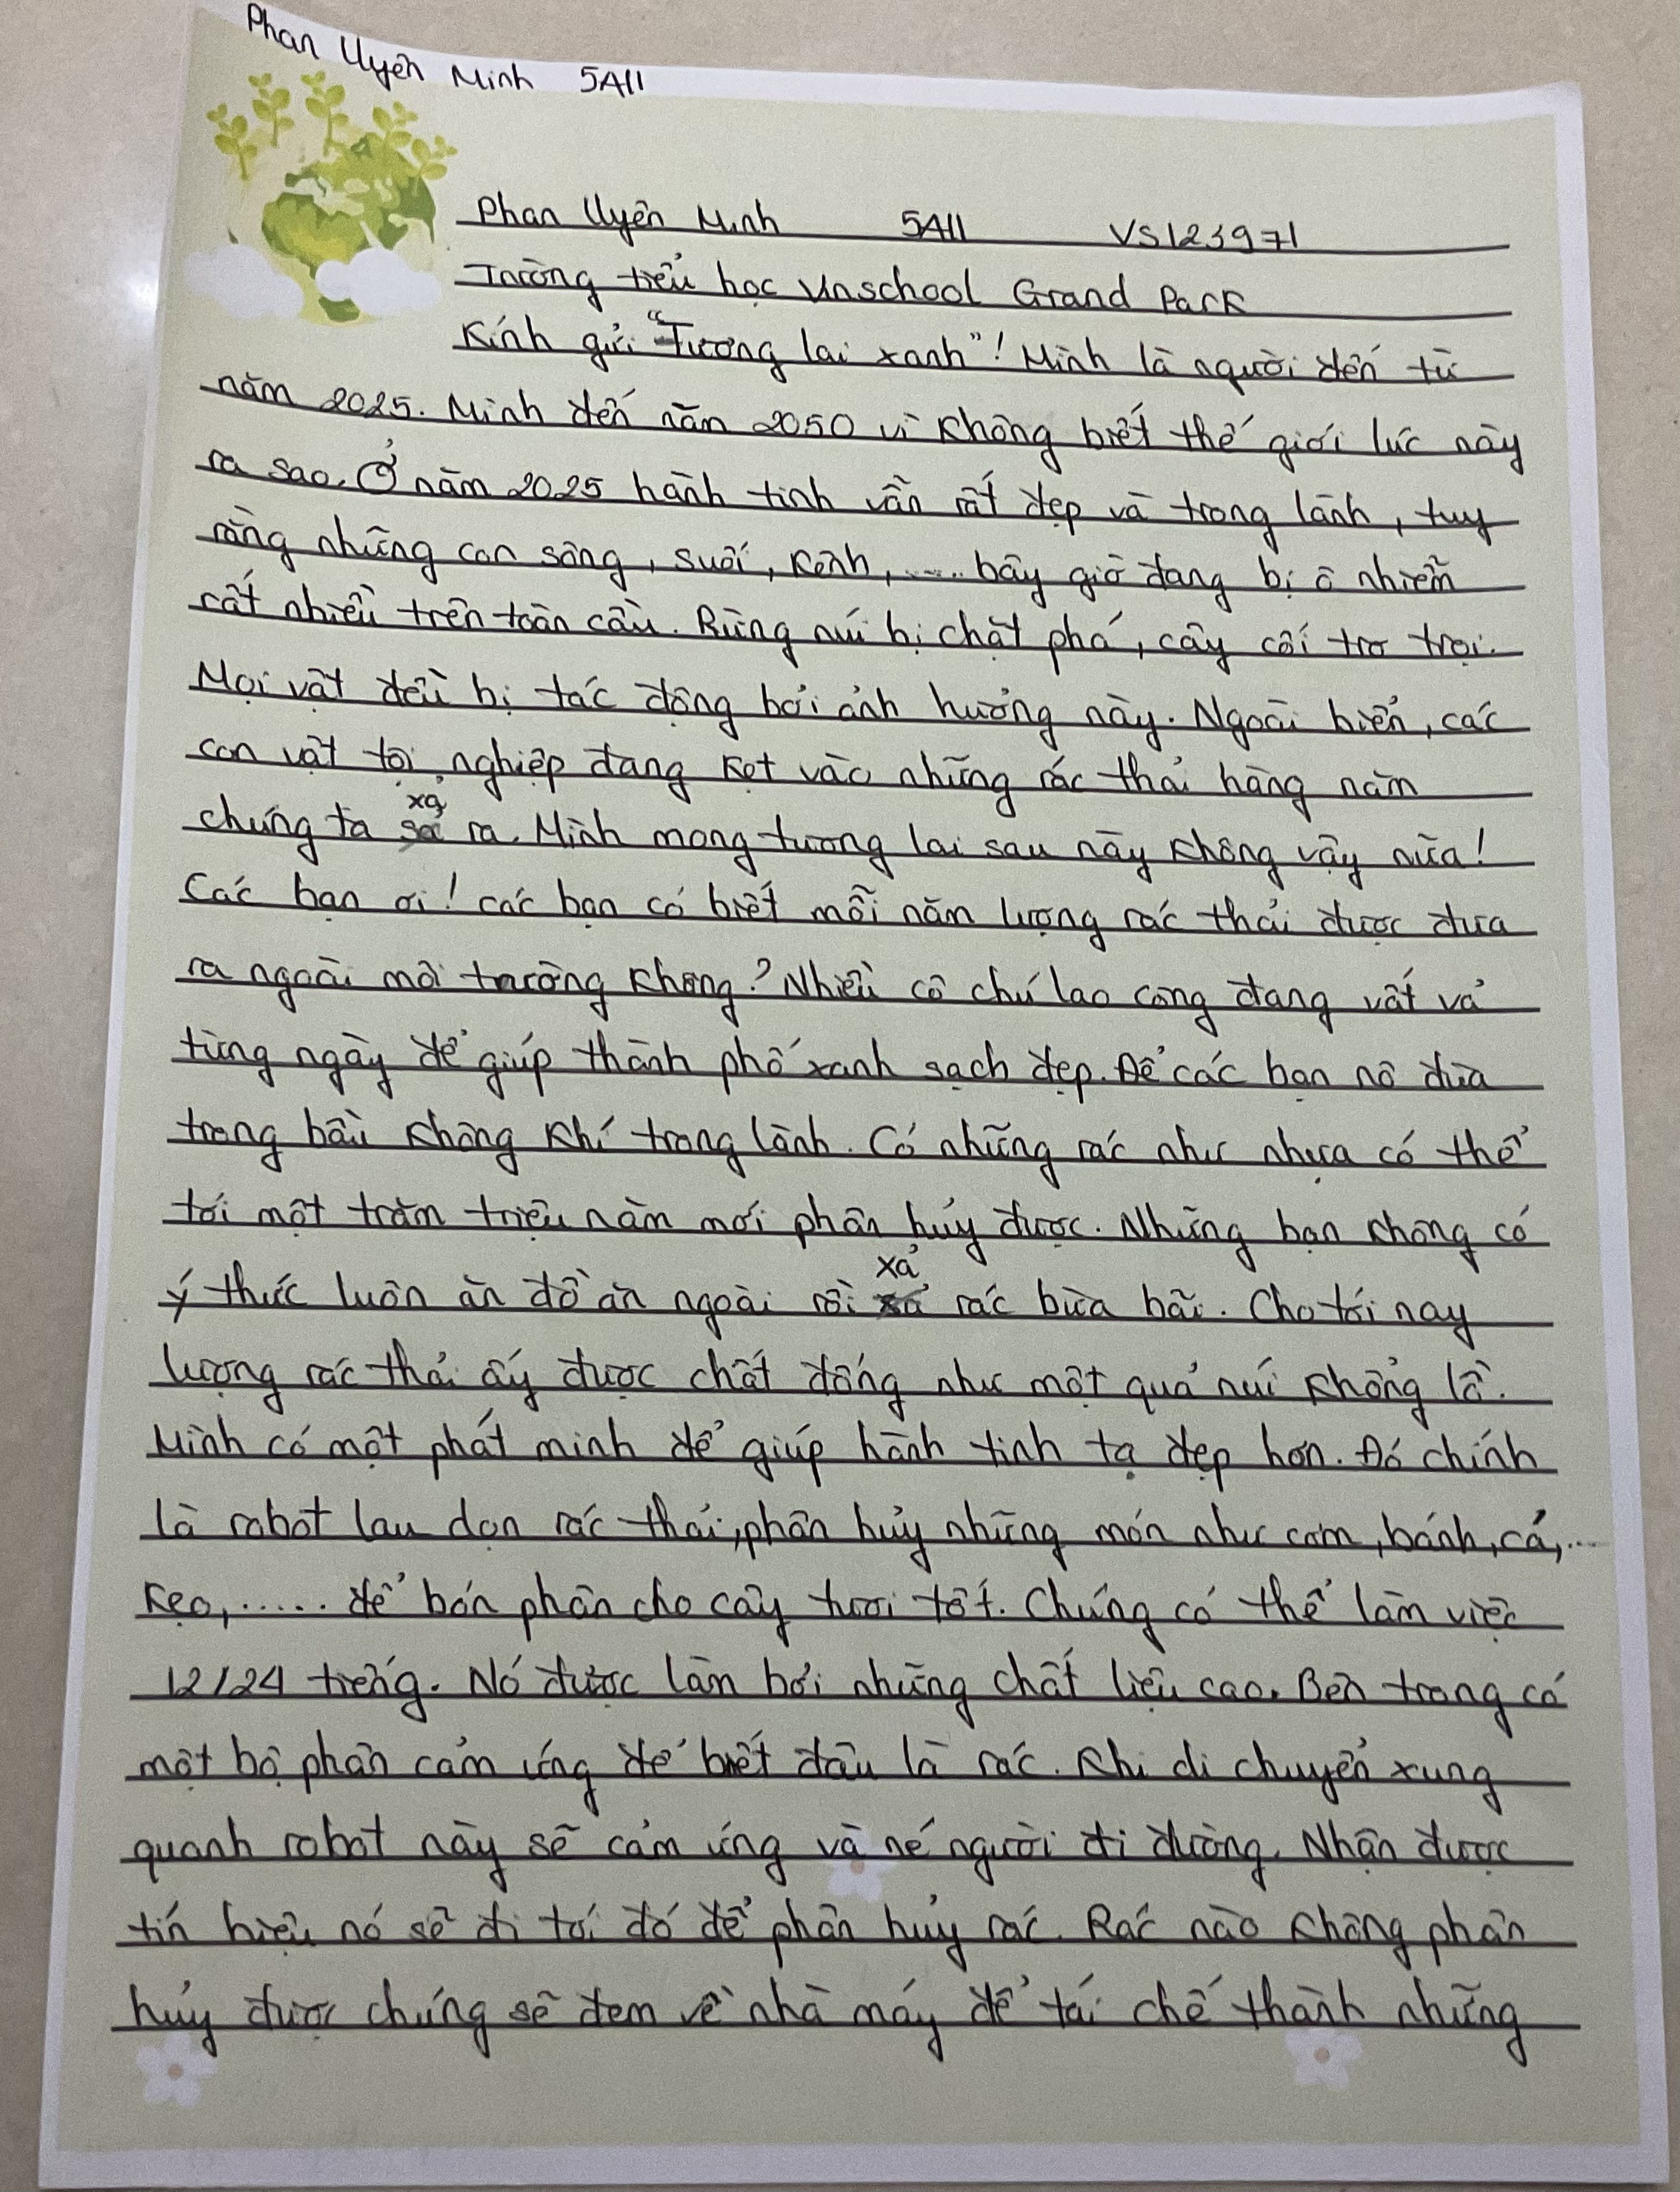 Phan Uyên Minh 5A11
Phan Uyên Minh 5A11 VS123971
Trường tiểu học Vinschool Grand Park
Kính gửi "Tương lai xanh"! Mình là người đến từ
năm 2025. Mình đến năm 2050 vì không biết thế giới lúc này
ra sao. Ở năm 2025 hành tinh vẫn rất đẹp và trong lành, tuy
rằng những con sông, suối, kênh, ..... bây giờ đang bị ô nhiễm
rất nhiều trên toàn cầu. Rừng núi bị chặt phá, cây cối trơ trọi.
Mọi vật đều bị tác động bởi ảnh hưởng này. Ngoài biển, các
con vật tội nghiệp đang kẹt vào những rác thải hằng năm
chúng ta xả ra. Mình mong tương lai sau này không vậy nữa!
Các bạn ơi! các bạn có biết mỗi năm lượng rác thải được đưa
ra ngoài môi trường không? Nhiều cô chú lao công đang vất vả
từng ngày để giúp thành phố xanh sạch đẹp. Để các bạn nô đùa
trong bầu không khí trong lành. Có những rác như nhựa có thể
tới một trăm triệu năm mới phân hủy được. Những bạn không có
ý thức luôn ăn đồ ăn ngoài rồi xả rác bừa bãi. Cho tới nay
lượng rác thải ấy được chất đống như một quả núi khổng lồ.
Mình có một phát minh để giúp hành tinh ta đẹp hơn. Đó chính
là robot lau dọn rác thải, phân hủy những món như cơm, bánh, cá,...
kẹo, ..... để bón phân cho cây tươi tốt. Chúng có thể làm việc
12/24 tiếng. Nó được làm bởi những chất liệu cao. Bên trong có
một bộ phận cảm ứng để biết đâu là rác. Khi di chuyển xung
quanh robot này sẽ cảm ứng và né người đi đường. Nhận được
tín hiệu nó sẽ đi tới đó để phân hủy rác. Rác nào không phân
hủy được chúng sẽ đem về nhà máy để tái chế thành những